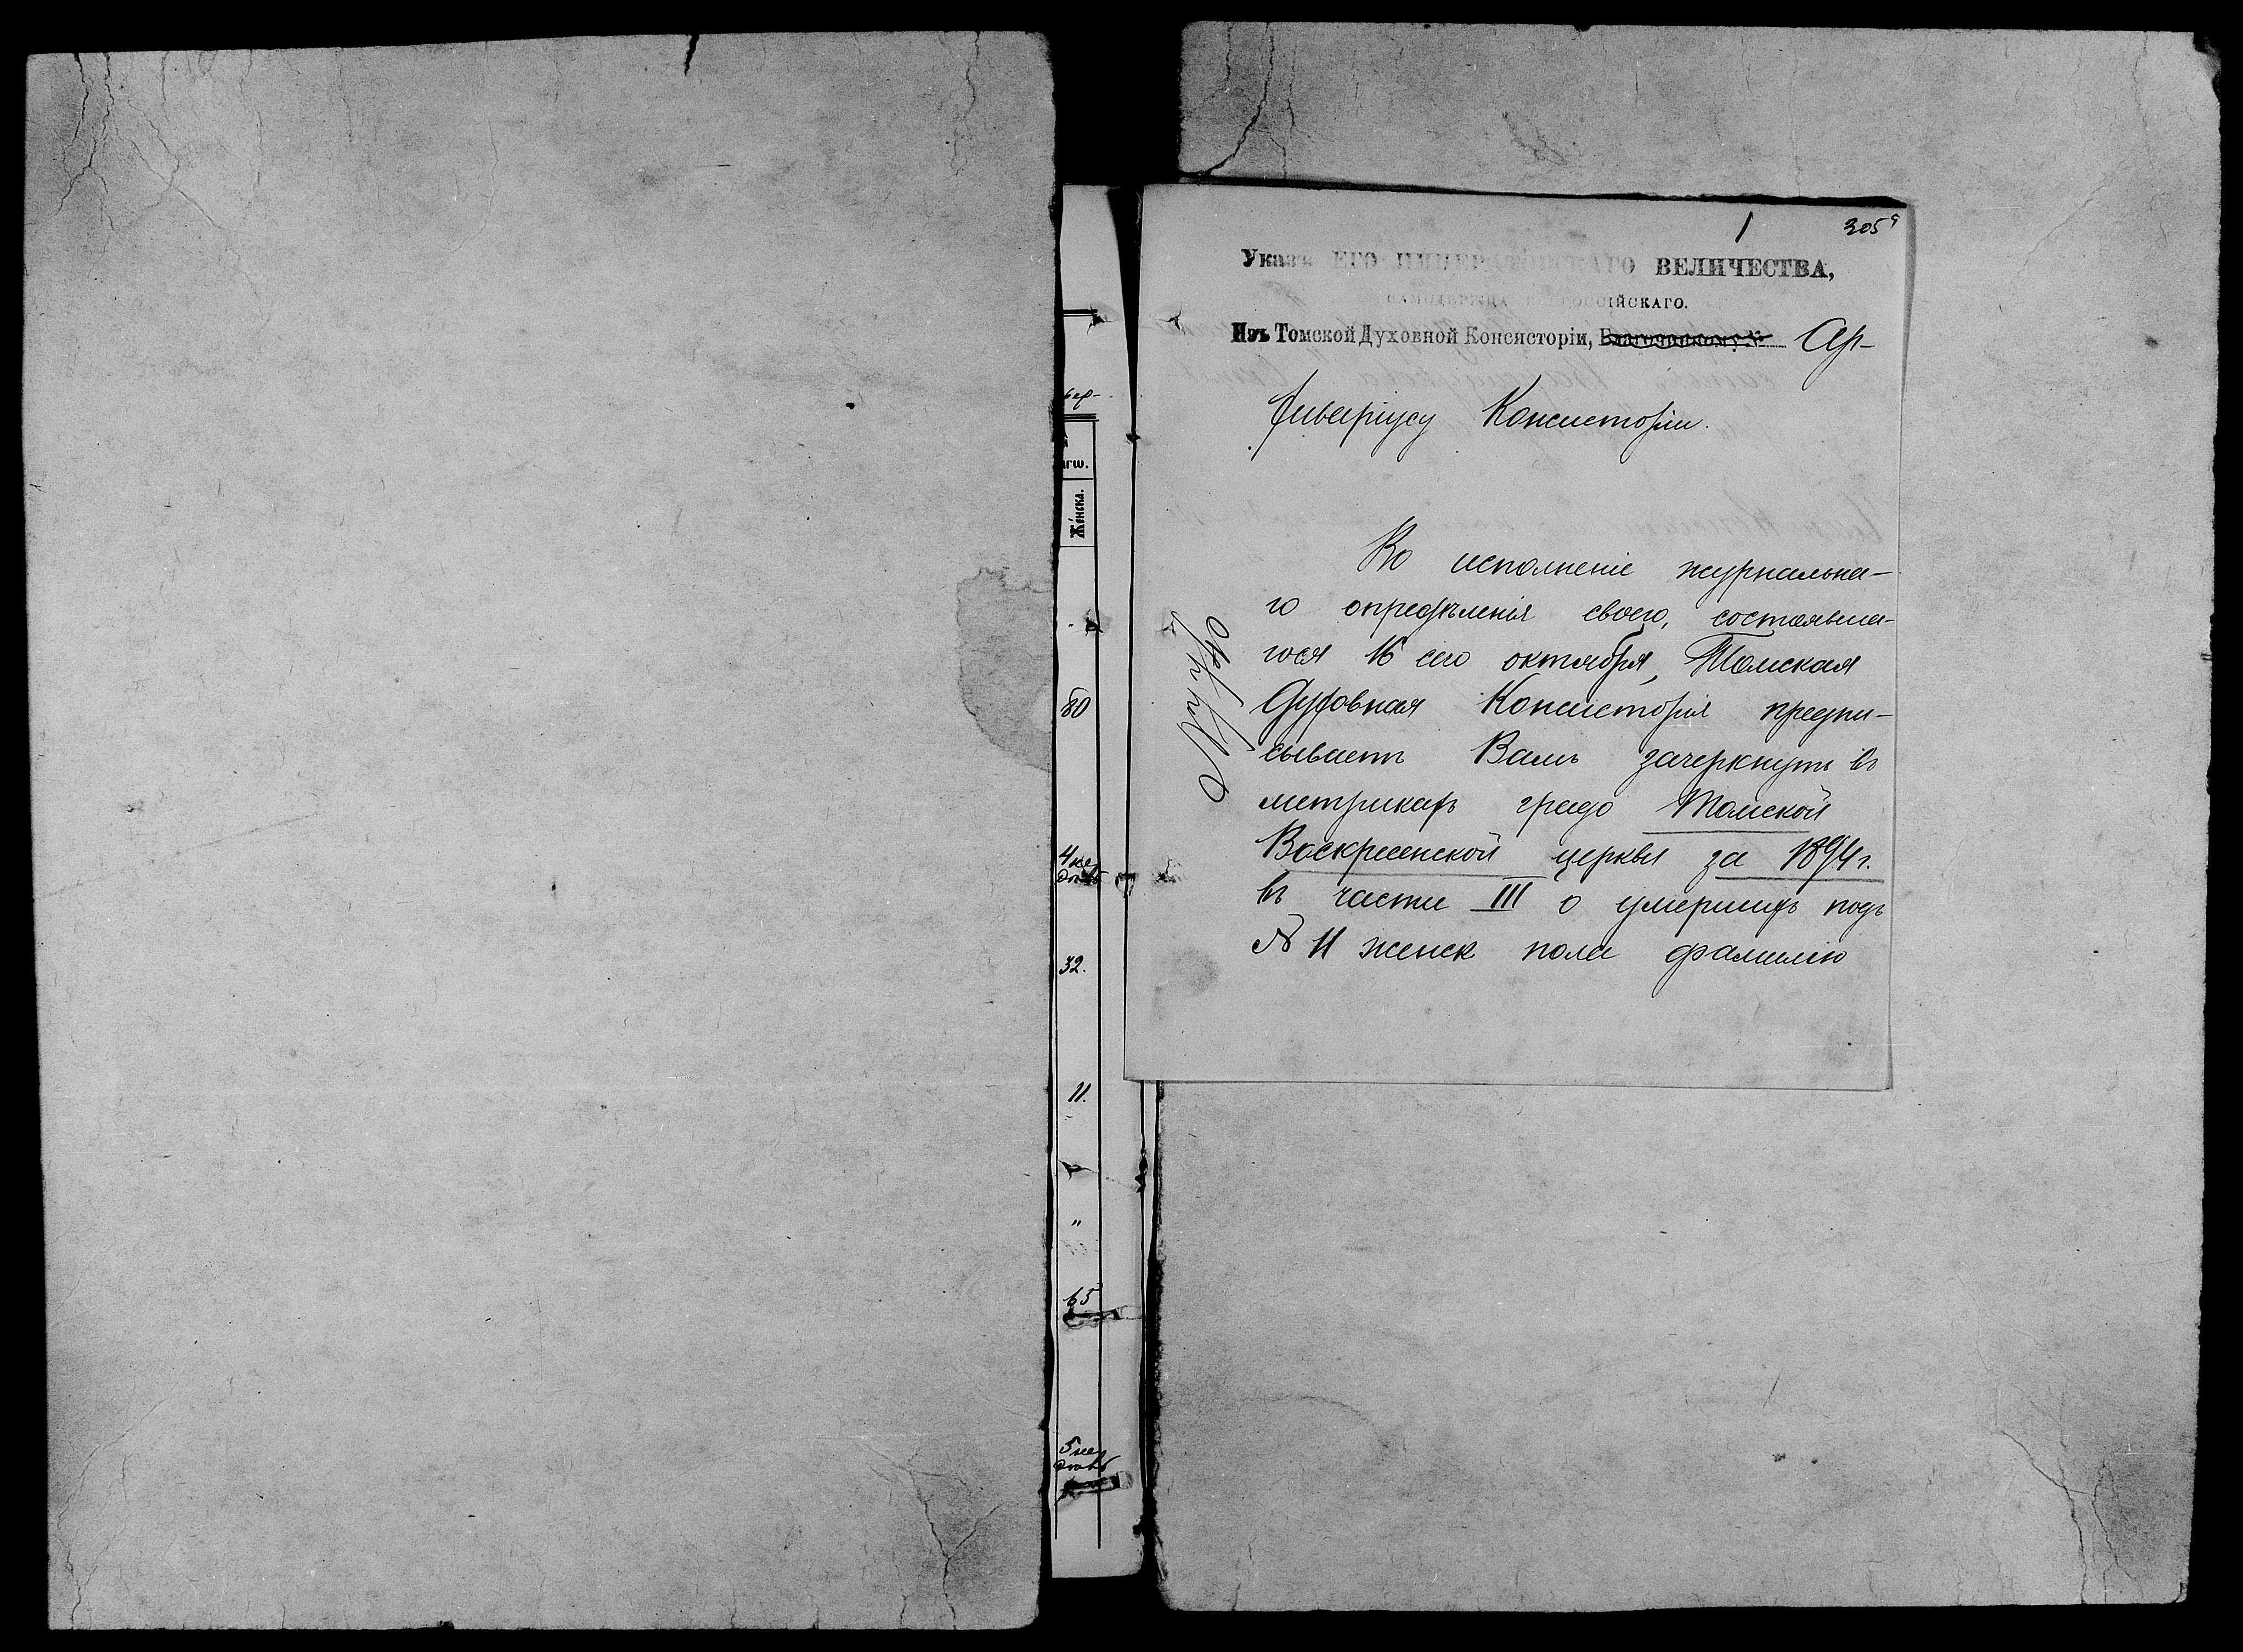 бер-
агш.
Же́нска.
80
4 не
32.
11.
"
65
5 не
1
305
Указъ ЕГО ИМПЕРАТОРСКАГО ВЕЛИЧЕСТВА,
САМОДЕРЖЦА ВСЕРОССІЙСКАГО.
Изъ Томской Духовной Консисторіи, Благочинному № Ар-
хиваріусу Консисторіи.
Во исполненіе журнальна-
го опредѣленія своего, состоявша-
гося 16 сего октября, Томская
Духовная Консисторія предпи-
сываетъ Вамъ зачеркнуть въ
метрикахъ градо Томской
Воскресенской церкви за 1894 г.
въ части III о умершихъ подъ
№ 11 женск пола фамилію